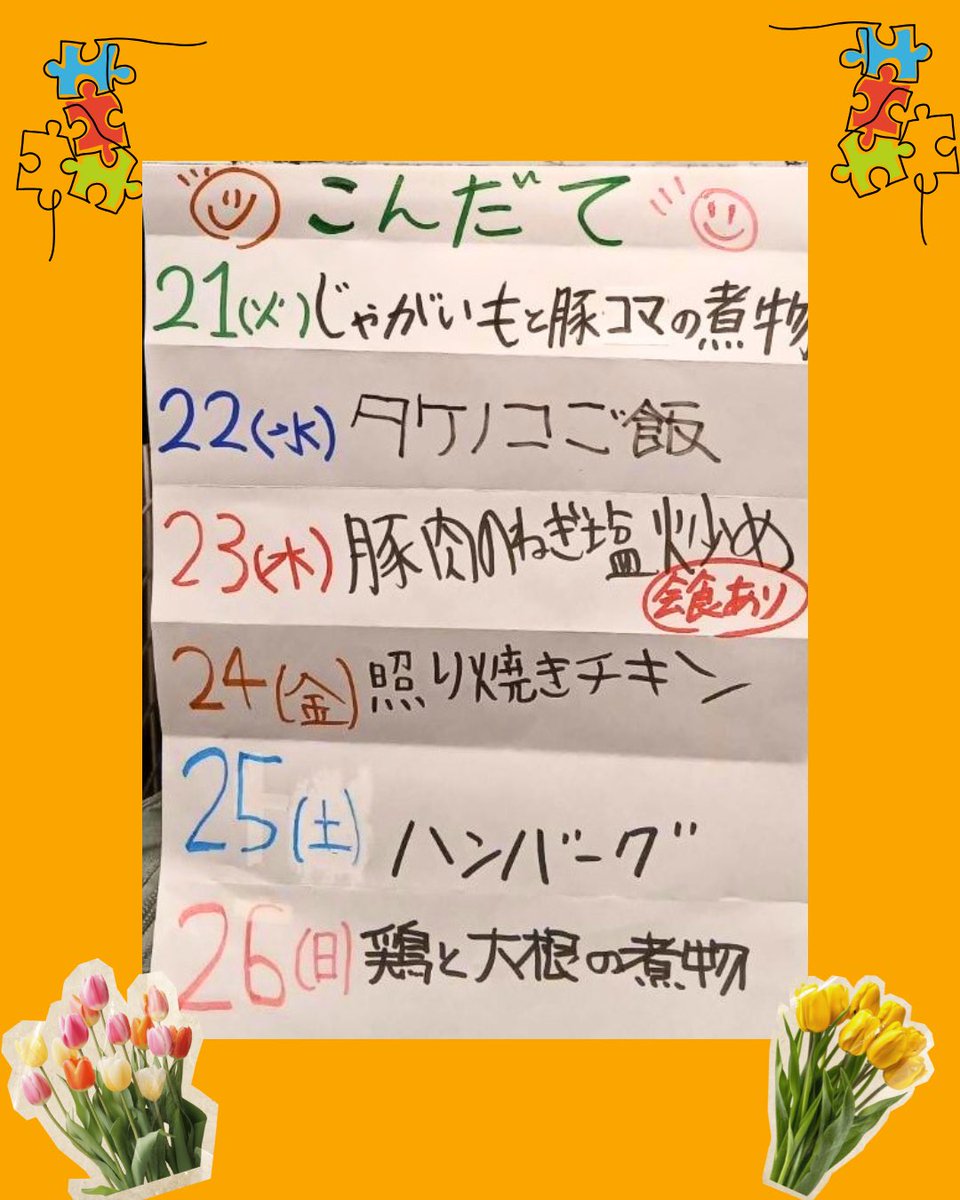 こんだて
21(火)じゃがいもと豚コマの煮物
22(水)タケノコご飯
23(木)豚肉のねぎ塩炒め
会食あり
24(金)照り焼きチキン
25(土)ハンバーグ
26(日)鶏と大根の煮物